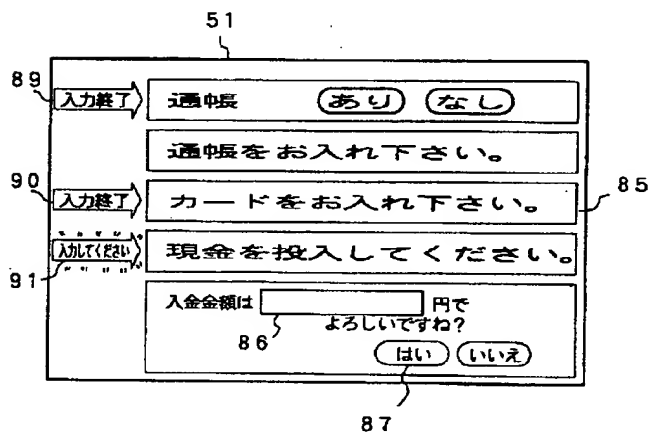 51
89
入力終了 通帳 あり なし
通帳をお入れ下さい。
90
入力終了 カードをお入れ下さい。 85
入力してください 現金を投入してください。
91
入金金額は 円で
86 よろしいですね?
はい いいえ
87